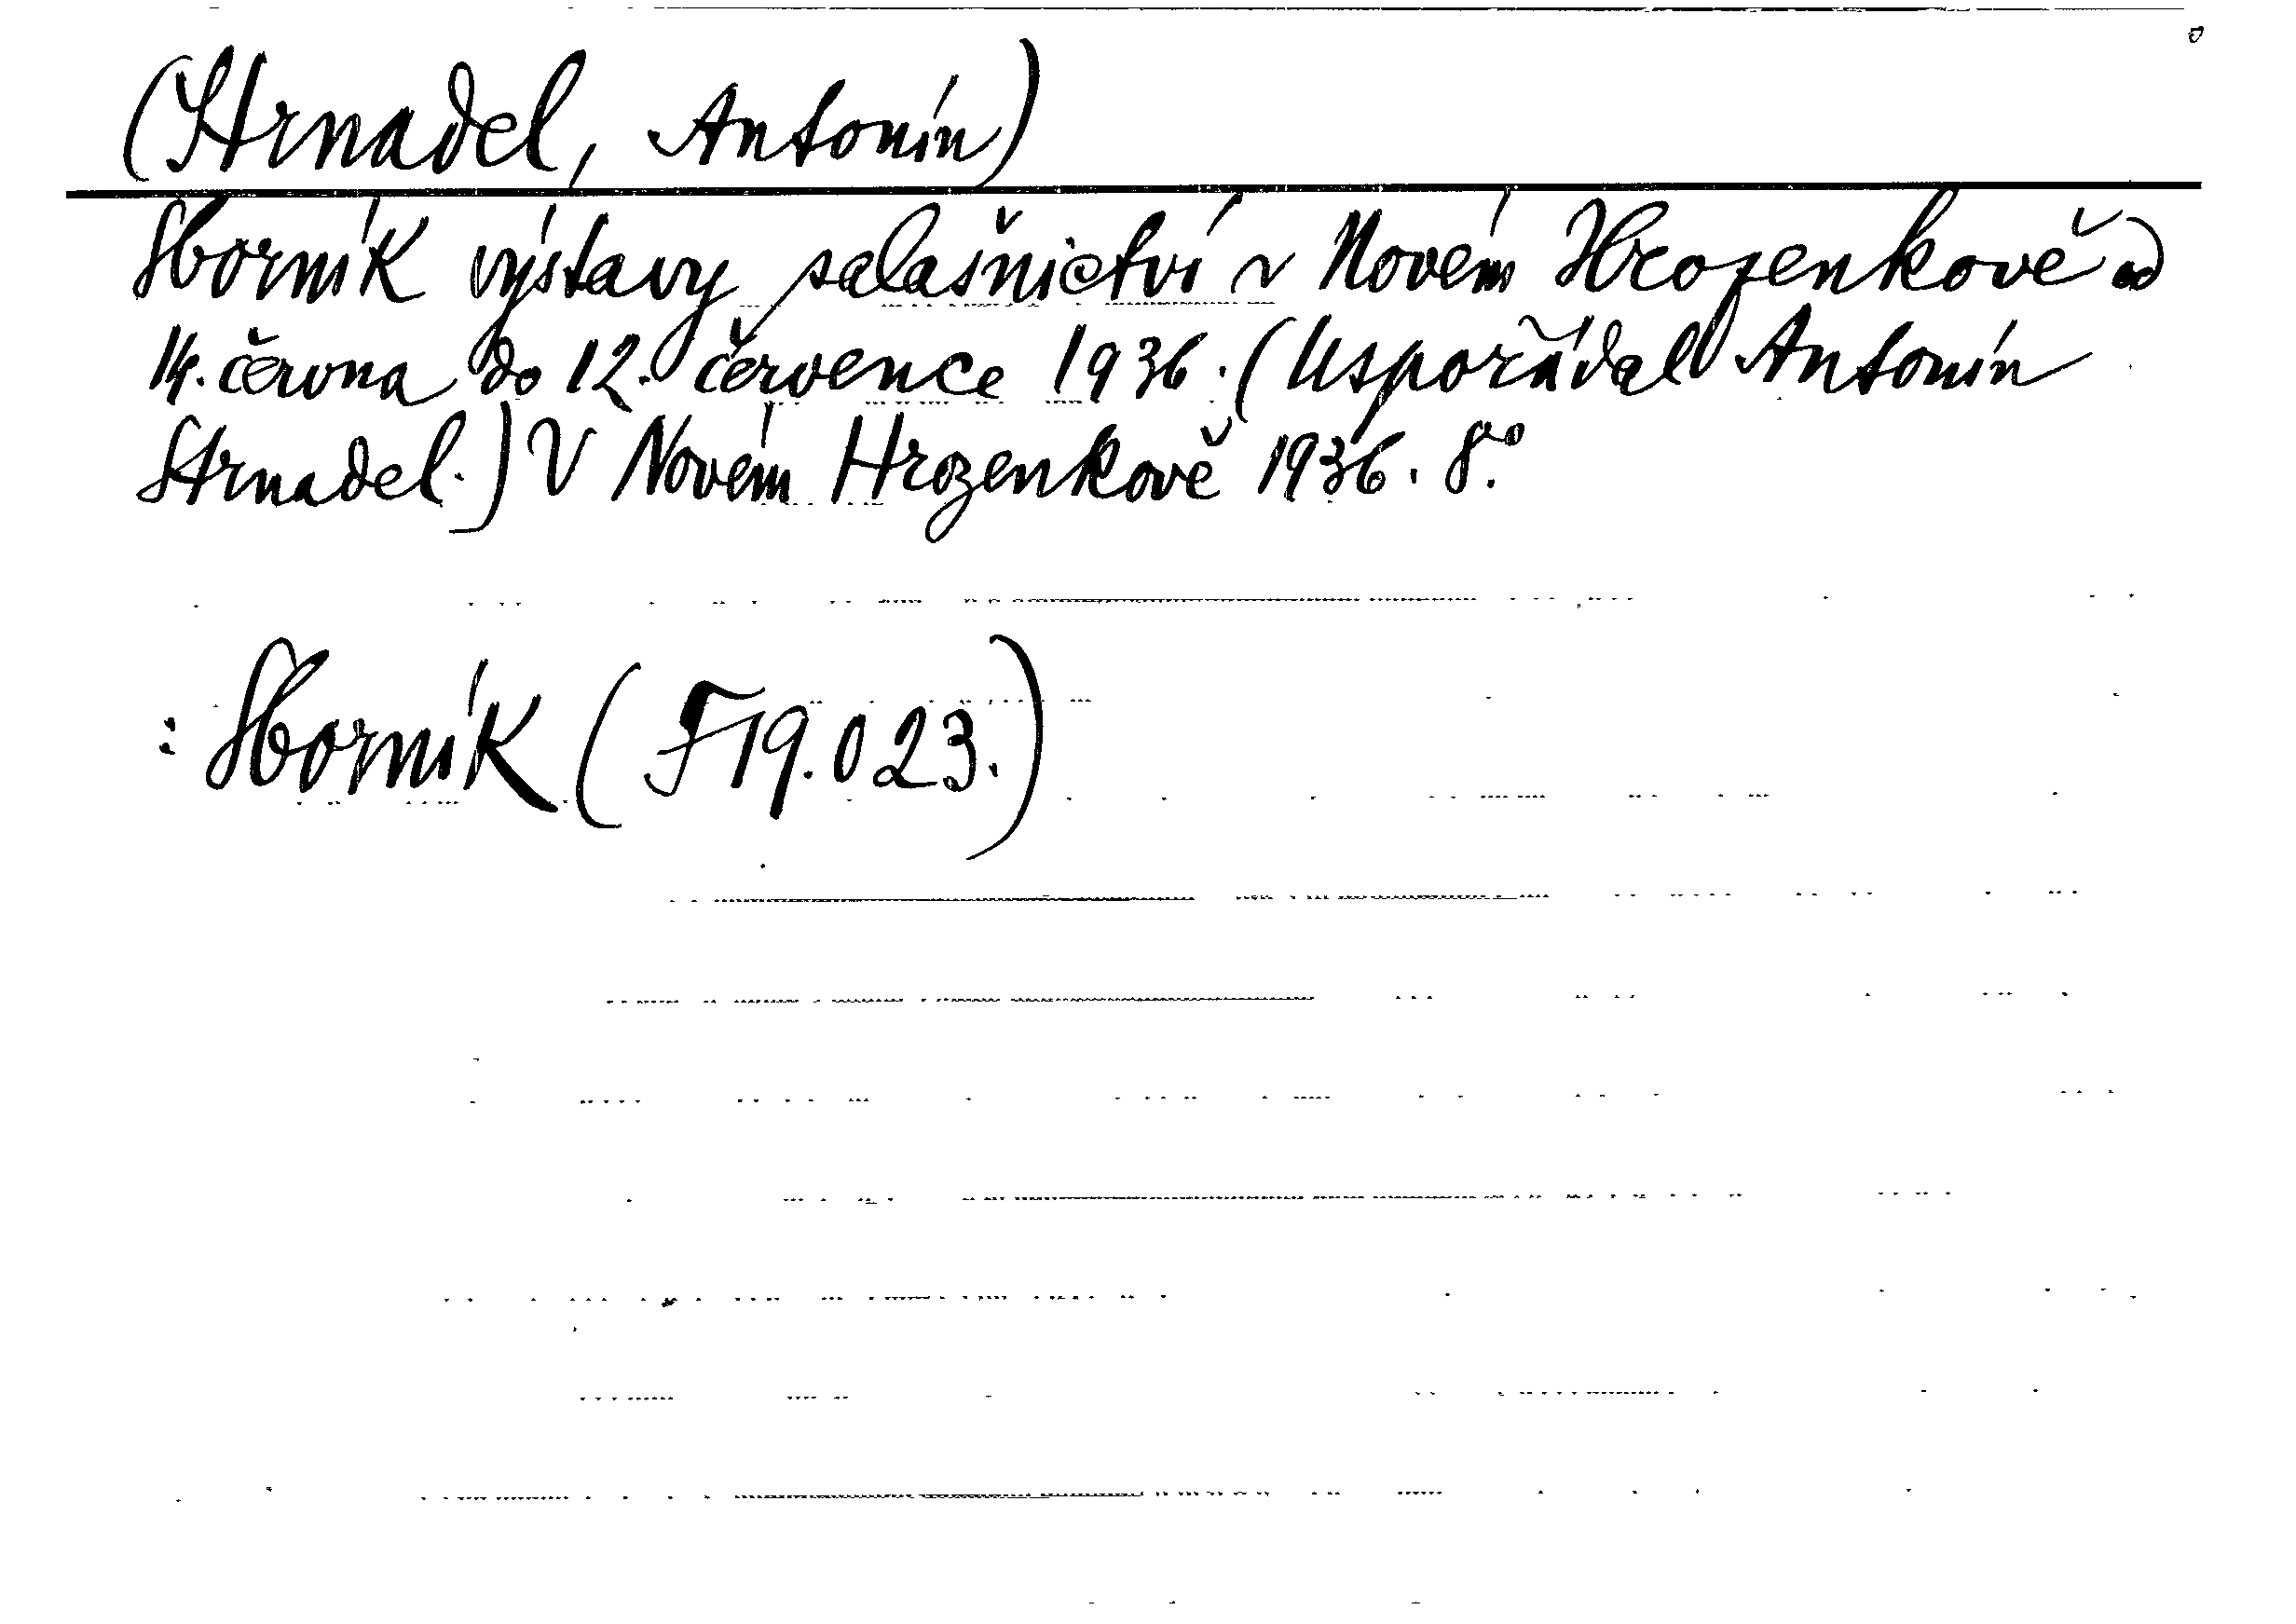 (Strnadel, Antonín)
Sborník výstavy salašnictví v Novém Hrozenkově od
14. června do 12. července 1936. (Uspořádal Antonín
Strnadel.) V Novém Hrozenkově 1936. 8.°
: Sborník (F19.023.)